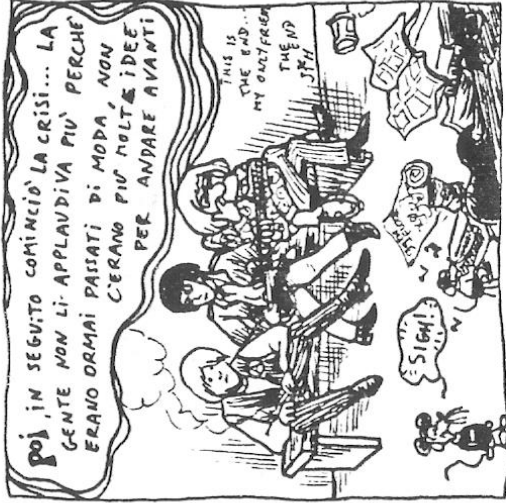 poi, IN SEGUITO COMINCIÒ LA CRISI... LA
GENTE NON LI APPLAUDIVA PIÙ PERCHÈ
ERANO ORMAI PASSATI DI MODA, NON
C'ERANO PIÙ MOLTE IDEE
PER ANDARE AVANTI
THIS IS
THE END...
MY ONLY FRIEND
THE END
SIGH!